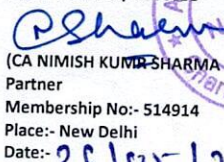 (CA NIMISH KUMR SHARMA
Partner
Membership No:- 514914
Place:- New Delhi
Date:-